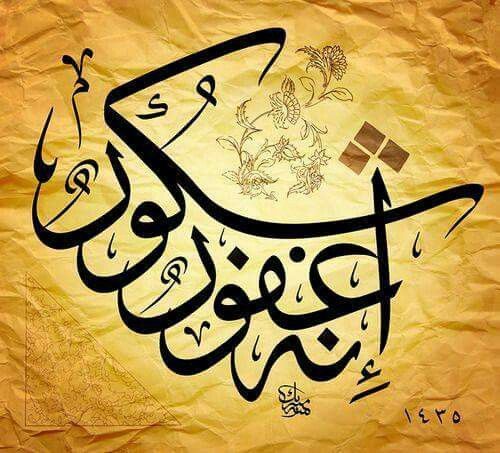 إنه غفور شكور
١٤٣٥